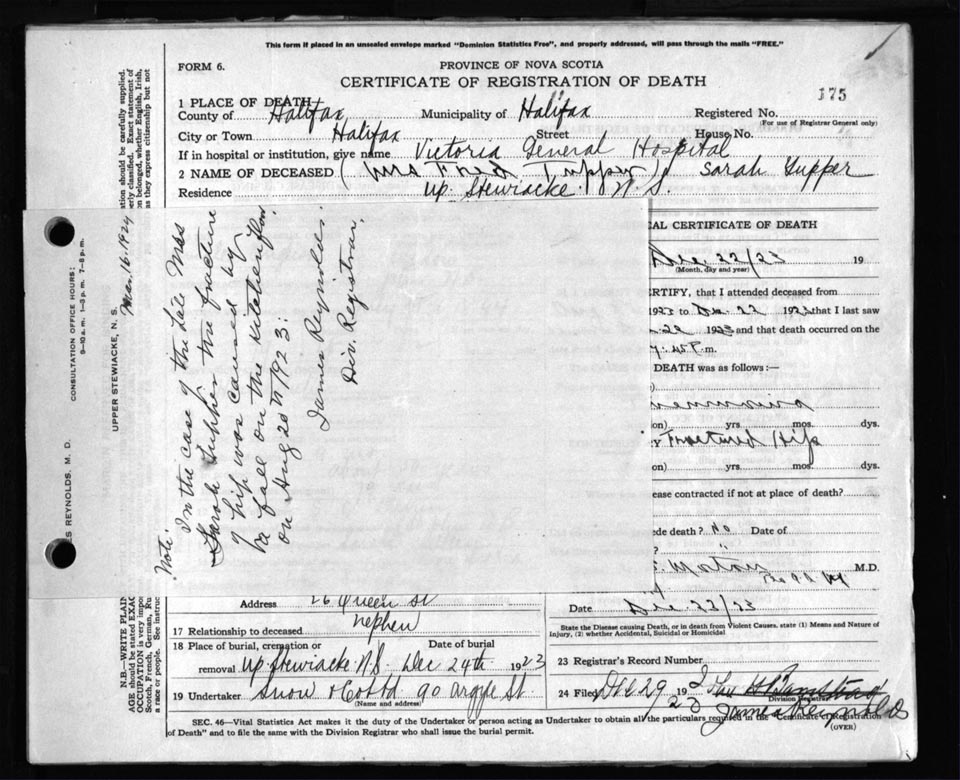 This form if placed in an unsealed envelope marked "Dominion Statistics Free", and properly addressed, will pass through the mails "FREE."
FORM 6.
PROVINCE OF NOVA SCOTIA
CERTIFICATE OF REGISTRATION OF DEATH
175
1 PLACE OF DEATH
County of Halifax Municipality of Halifax Registered No.
(For use of Registrar General only)
City or Town Halifax Street House No.
If in hospital or institution, give name Victoria General Hospital
2 NAME OF DECEASED (Mrs Fred Tupper) Sarah Tupper
Residence Up. Stewiacke N.S.
CONSULTATION OFFICE HOURS:
9-10 a.m. 1-3 p.m. 7-8 p.m.
S REYNOLDS, M. D.
UPPER STEWIACKE, N. S.
Mar. 16. 1924
Note.
In the case of the late Mrs
Sarah Tupper the fracture
of hip was caused by
a fall on the kitchen floor
on Aug 20th 1923:
James Reynolds.
Div. Registrar.
AL CERTIFICATE OF DEATH
Dec. 22/23 19
(Month, day and year)
ERTIFY, that I attended deceased from
1923 to Dec. 22 1923 that I last saw
22 1923 and that death occurred on the
7:45 P.m.
DEATH was as follows:—
on) yrs mos. dys.
Y Fractured Hip
on) yrs mos. dys.
ease contracted if not at place of death?
ede death? No Date of
?
Morton M.D.
Address 26 Queen St
Date Dec 22/23
State the Disease causing Death, or in death from Violent Causes, state (1) Means and Nature of
Injury, (2) whether Accidental, Suicidal or Homicidal
17 Relationship to deceased nephew
18 Place of burial, cremation or Date of burial
removal Up. Stewiacke N.S. Dec 24th 1923
23 Registrar's Record Number
19 Undertaker Snow & Co Ltd 90 Argyle St.
(Name and address)
24 Filed Dec 29 192
23
Division Registrar
James Reynolds
SEC. 46—Vital Statistics Act makes it the duty of the Undertaker or person acting as Undertaker to obtain all the particulars required in the Certificate of Registration
of Death" and to file the same with the Division Registrar who shall issue the burial permit.
(OVER)
N.B.—WRITE PLAIN
AGE should be stated EXAC
OCCUPATION is very impor
Scotch, French, German, Ru
a race or people. See instruc
ation should be carefully supplied.
perly classified. Exact statement of
on belonged, whether English, Irish,
as they express citizenship but not